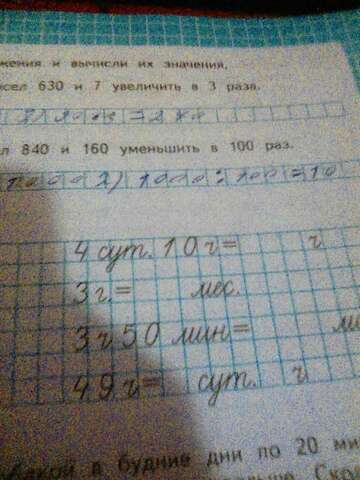 жения и вычисли их значения.
сел 630 и 7 увеличить в 3 раза.
л 840 и 160 уменьшить в 100 раз.
2) 1000:100=10
4 сут. 10 ч= ч
3 г.= мес.
3 ч 50 мин= м
49 ч= сут. ч
в будние дни по 20 ми